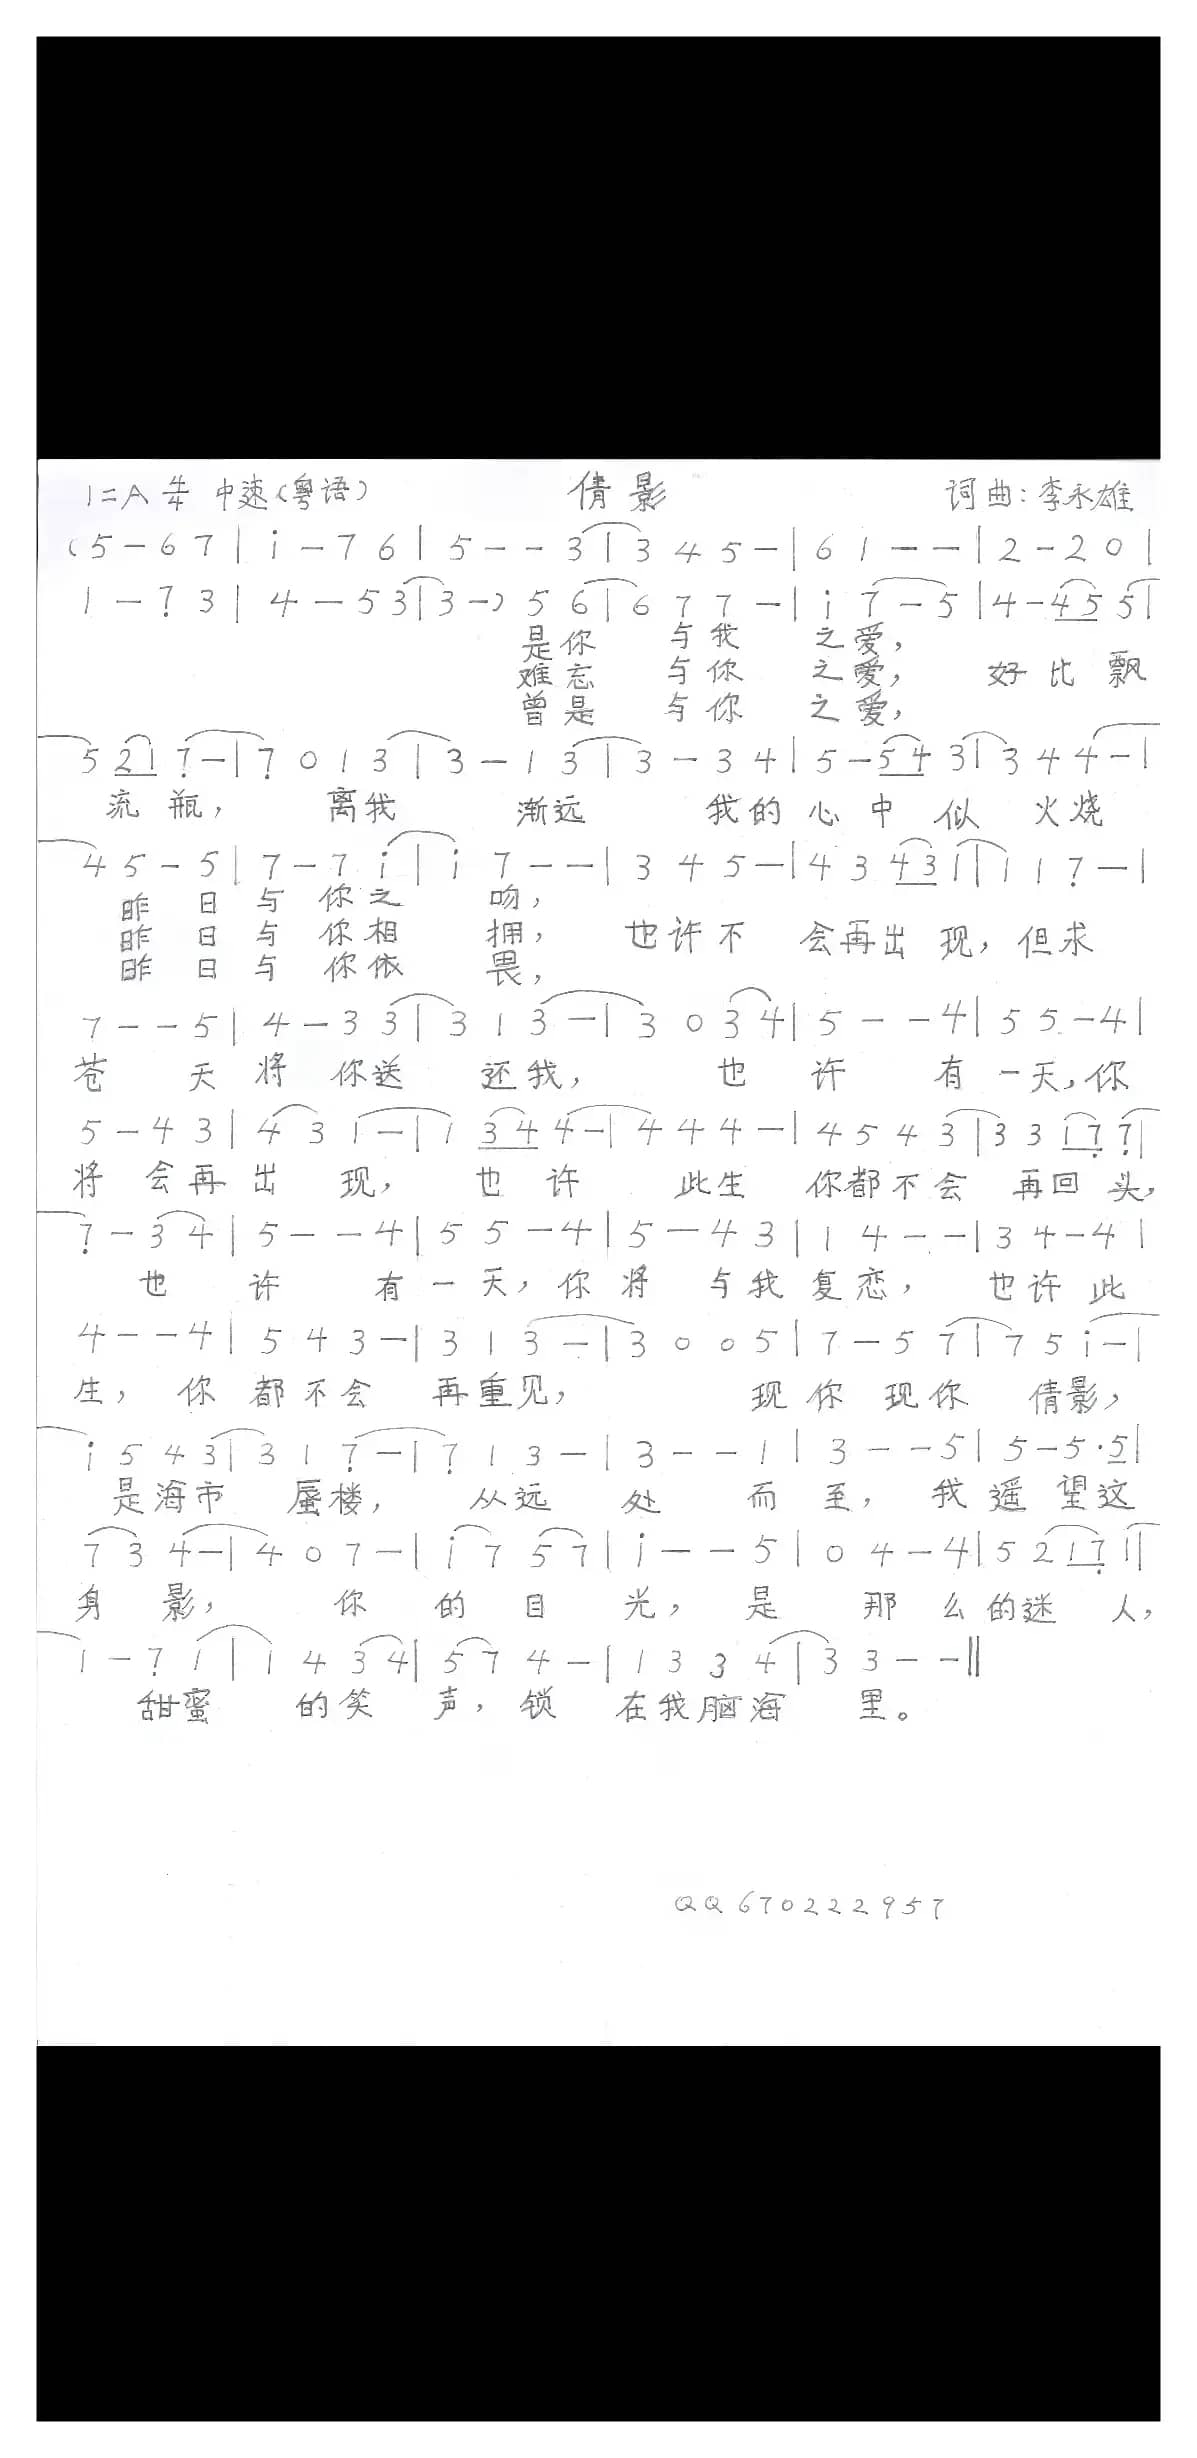 1=A 4/4 中速(粤语) 倩影 词曲:李永雄
(5 - 6 7 | i - 7 6 | 5 - - 3 | 3 4 5 - | 6 1 - - | 2 - 2 0 |
1 - 7̣ 3 | 4 - 5 3 | 3 -) 5 6 | 6 7 7 - | i 7 - 5 | 4 - 4 5 5 |
是你 与我 之爱,
难忘 与你 之爱, 好比飘
曾是 与你 之爱,
5 2 1 7̣ - | 7̣ 0 1 3 | 3 - 1 3 | 3 - 3 4 | 5 - 5 4 3 | 3 4 4 - |
流瓶, 离我 渐远 我的心中似火烧
4 5 - 5 | 7 - 7 i | i 7 - - | 3 4 5 - | 4 3 4 3 1 | 1 1 7̣ - |
昨日与你之 吻,
昨日与你相 拥, 也许不会再出现,但求
昨日与你依 畏,
7 - - 5 | 4 - 3 3 | 3 1 3 - | 3 0 3 4 | 5 - - 4 | 5 5 - 4 |
苍天将你送还我, 也许有一天,你
5 - 4 3 | 4 3 1 - | 1 3 4 4 - | 4 4 4 - | 4 5 4 3 | 3 3 1 7̣ 7̣ |
将会再出现, 也许此生你都不会再回头,
7̣ - 3 4 | 5 - - 4 | 5 5 - 4 | 5 - 4 3 | 1 4 - - | 3 4 - 4 |
也许有一天,你将与我复恋, 也许此
4 - - 4 | 5 4 3 - | 3 1 3 - | 3 0 0 5 | 7 - 5 7 | 7 5 i - |
生,你都不会再重见, 现你现你倩影,
i 5 4 3 | 3 1 7̣ - | 7̣ 1 3 - | 3 - - 1 | 3 - - 5 | 5 - 5 · 5 |
是海市蜃楼, 从远处而至,我遥望这
7 3 4 - | 4 0 7 - | i 7 5 7 | i - - 5 | 0 4 - 4 | 5 2 1 7̣ 1 |
身影, 你的目光,是那么的迷人,
1 - 7̣ 1 | 1 4 3 4 | 5 7 4 - | 1 3 3 4 | 3 3 - - ‖
甜蜜的笑声,锁在我脑海里。
QQ670222957